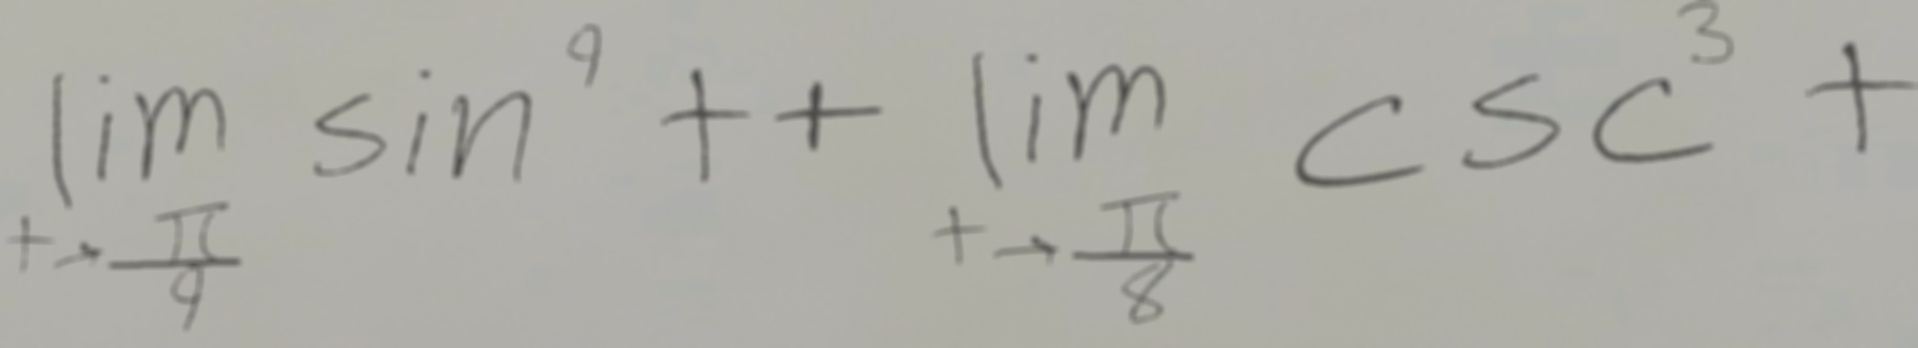 \lim_{t \to \frac{\pi}{9}} \sin^9 t + \lim_{t \to \frac{\pi}{8}} \csc^3 t